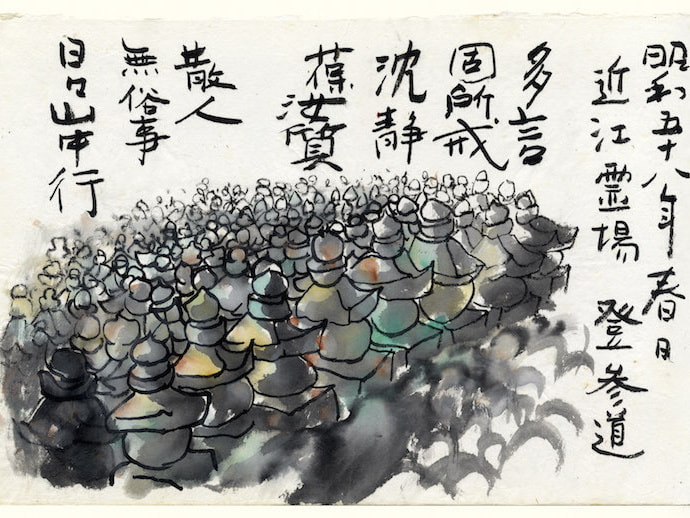 昭和五十八年春日
近江霊場 登参道
多言
固所戒
沈静
葆汝質
散人
無俗事
日々山中行